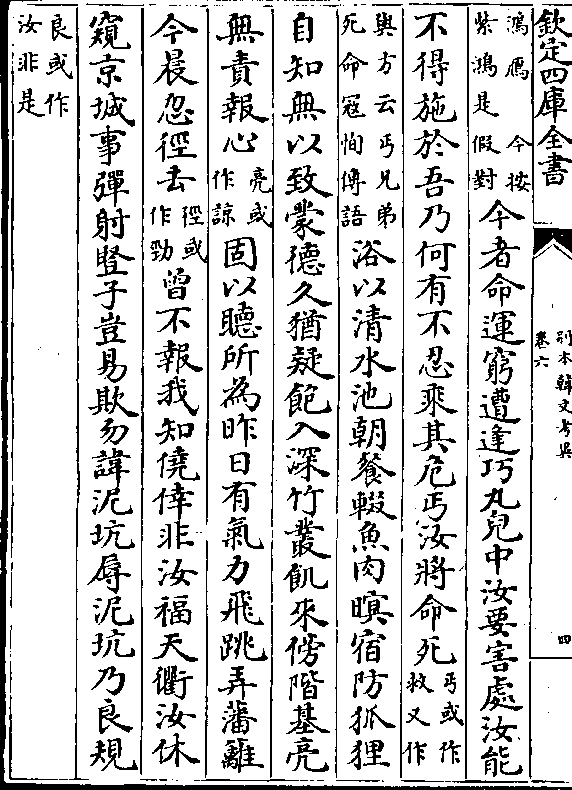 欽定四庫全書
別本韓文考異
卷六
四
鴻鴈 今按紫鴻是假對今者命運窮遭逢巧丸兒中汝要害處汝能
不得施於吾乃何有不忍乘其危丐汝將命死丐或作救又作
與方云丐兄弟死命寇恂傳語浴以清水池朝餐輟魚肉暝宿防狐狸
自知無以致蒙德久猶疑飽入深竹叢飢來傍階基亮
無責報心亮或作諒固以聽所為昨日有氣力飛跳弄藩籬
今晨忽徑去徑或作勁曾不報我知僥倖非汝福天衢汝休
窺京城事彈射豎子豈易欺勿諱泥坑辱泥坑乃良規
良或作汝非是